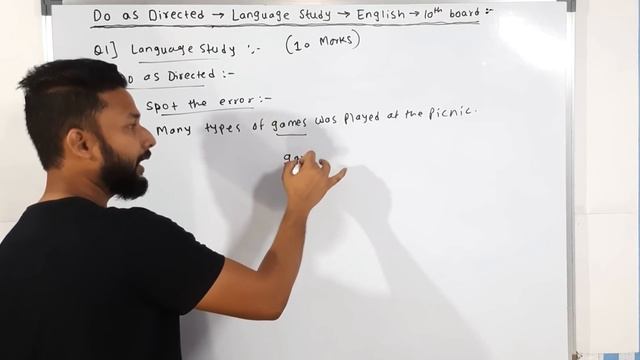 Do as Directed → Language Study → English → 10th board :-
Q1] Language Study :- (10 Marks)
Do as Directed :-
Spot the error :-
Many types of games was played at the picnic.